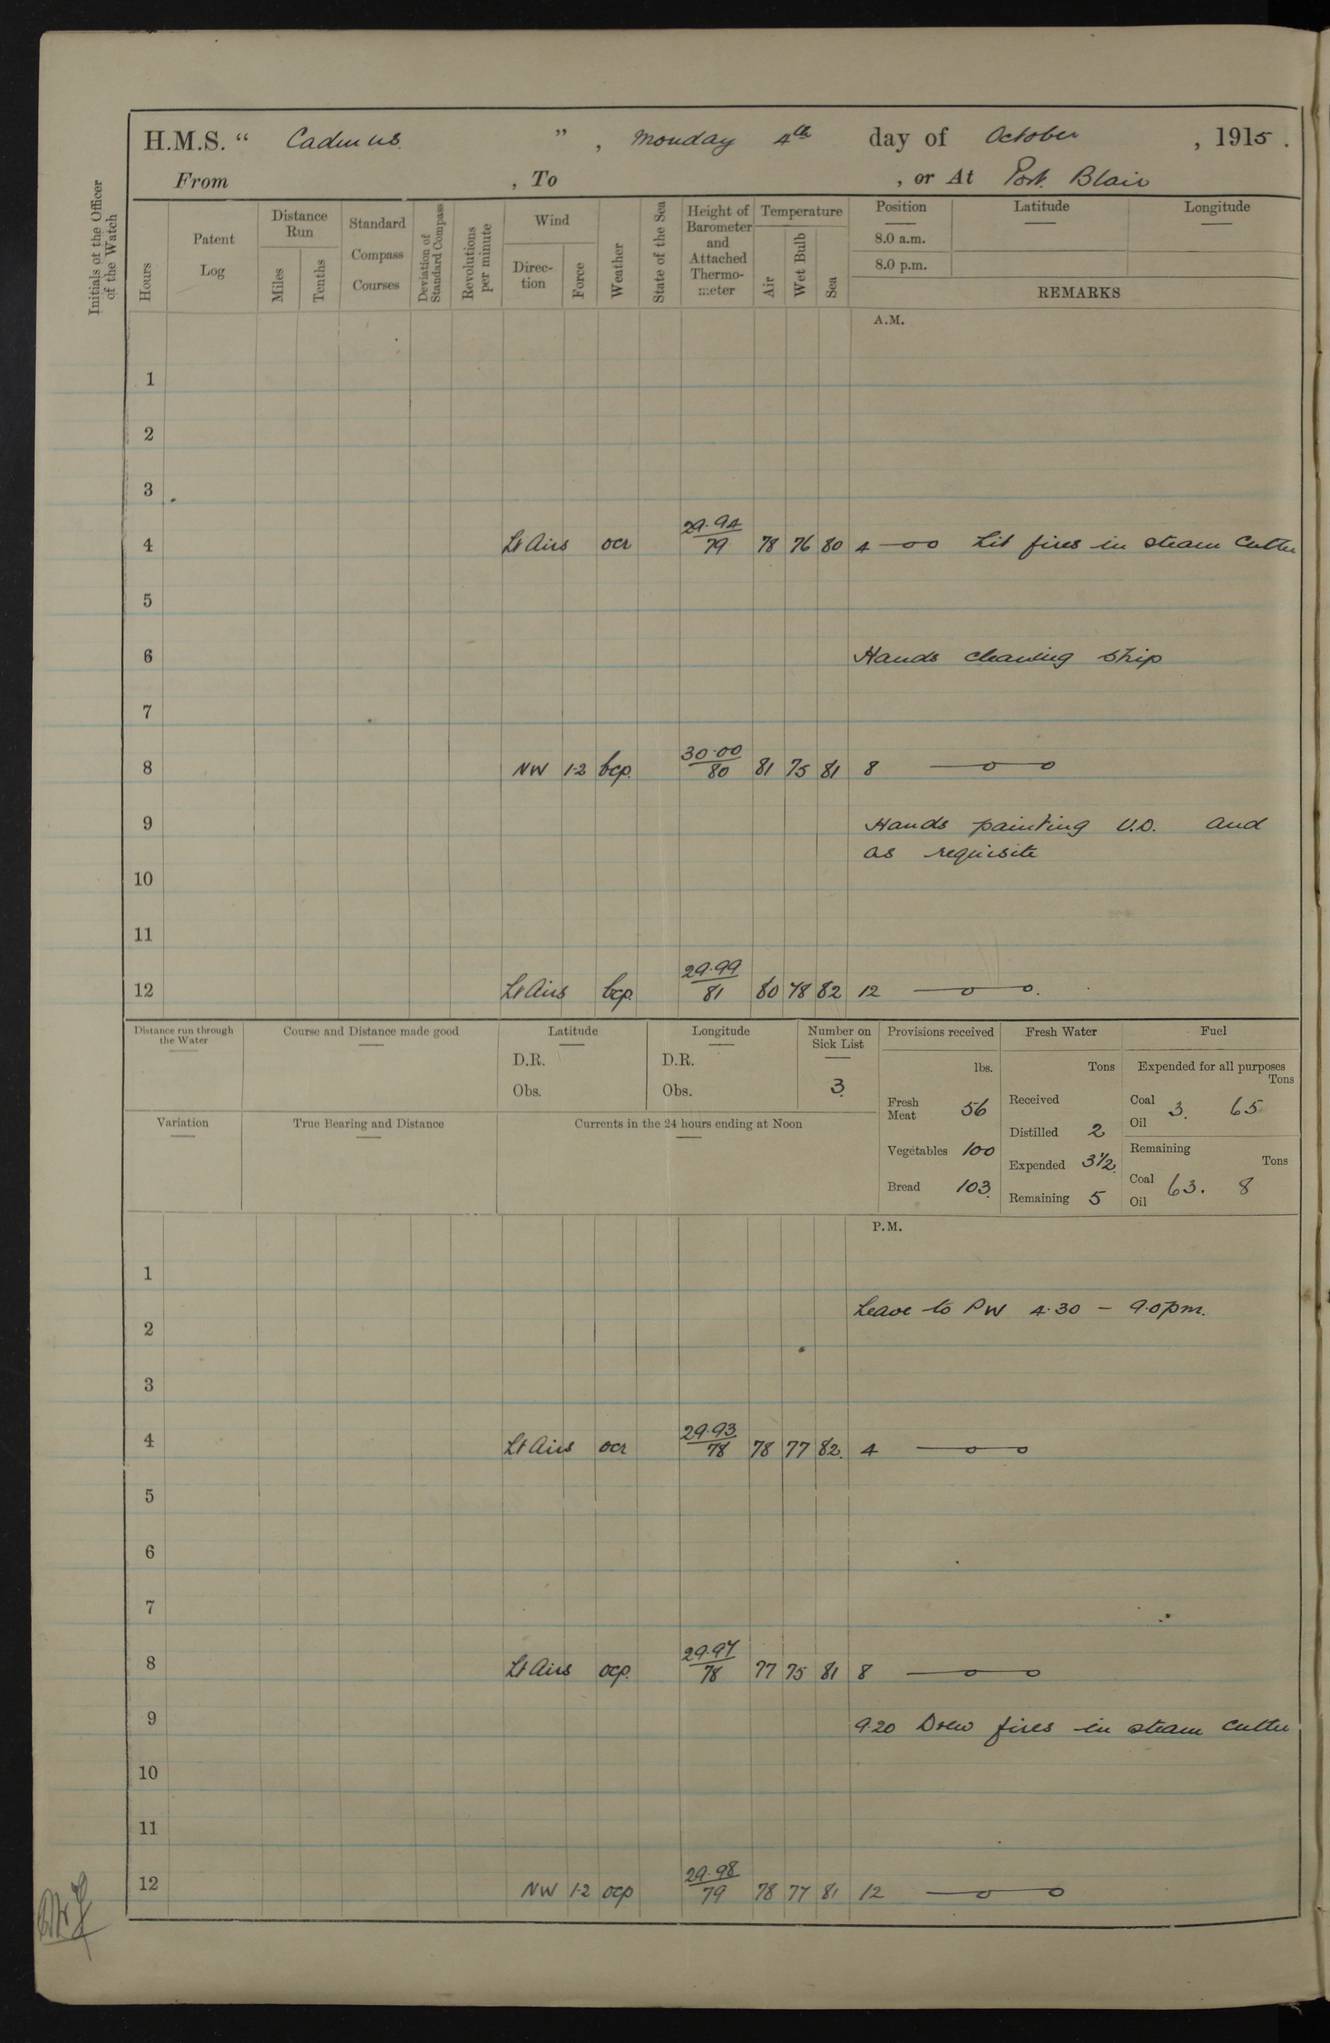 H.M.S. “ Cadmus ” , Monday 4th day of October , 1915 .
From , To , or At Port Blair
Initials of the Officer of the Watch
Hours
Patent Log
Distance Run
Miles
Tenths
Standard Compass Courses
Deviation of Standard Compass
Revolutions per minute
Wind
Direc-tion
Force
Weather
State of the Sea
Height of Barometer and Attached Thermo-meter
Temperature
Air
Wet Bulb
Sea
Position Latitude Longitude
8.0 a.m.
8.0 p.m.
REMARKS
A.M.
1
2
3
4 Lt Airs ocr 29.94/79 78 76 80 4 —oo Lit fires in steam Cutter
5
6 Hands cleaning ship
7
8 NW 1-2 bcp. 30.00/80 81 75 81 8
9 Hands painting U.D. and
as requisite
10
11
12 Lt Airs bcp. 29.99/81 80 78 82 12
Distance run through the Water
Course and Distance made good
Latitude
D.R.
Obs.
Longitude
D.R.
Obs.
Number on Sick List
3.
Provisions received
lbs.
Fresh Meat 56
Vegetables 100
Bread 103.
Fresh Water
Tons
Received
Distilled 2
Expended 3½.
Remaining 5
Fuel
Expended for all purposes
Tons
Coal 3. 65
Oil
Remaining
Tons
Coal 63. 8
Oil
Variation
True Bearing and Distance
Currents in the 24 hours ending at Noon
P.M.
1
Leave to PW 4.30 – 9.0pm.
2
3
4 Lt Airs ocr 29.93/78 78 77 82. 4
5
6
7
8 Lt Airs ocp. 29.97/78 77 75 81 8
9 9.20 Drew fires in steam Cutter
10
11
12 NW 1-2 ocp 29.98/79 78 77 81 12